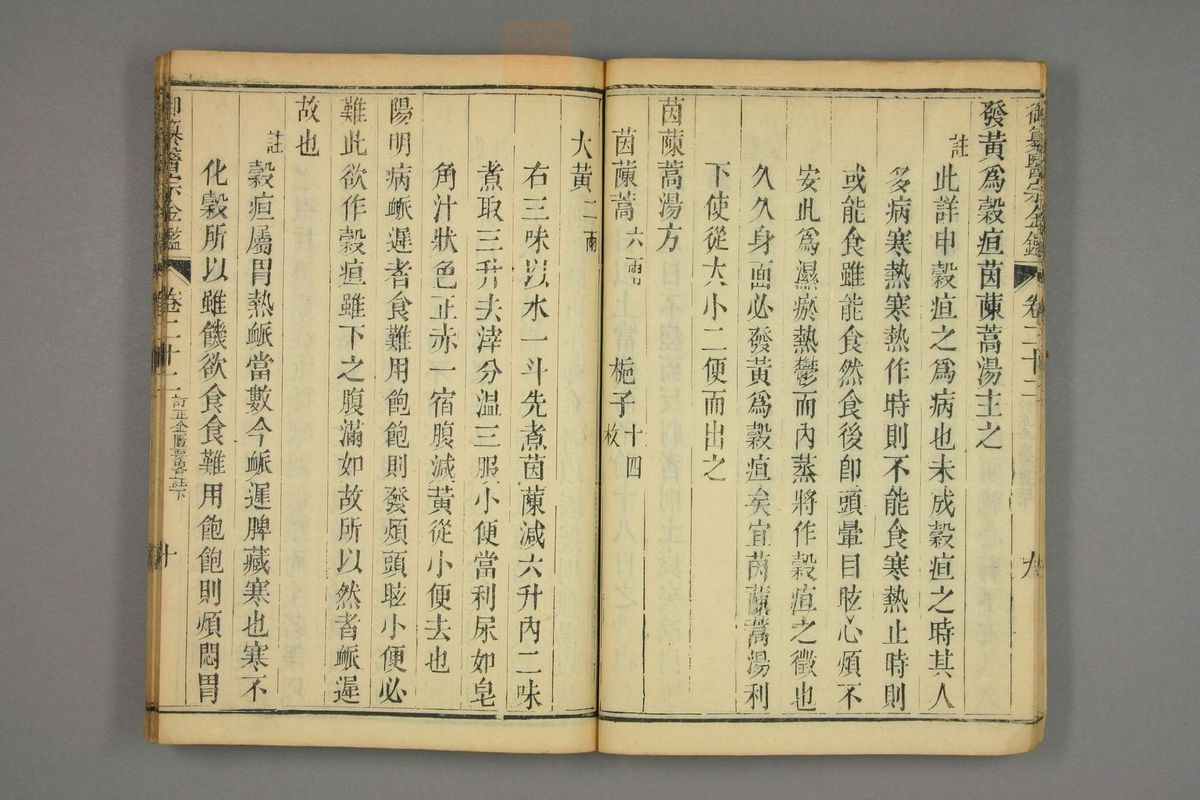 御纂醫宗金鑑 卷二十二 九
發黃爲穀疸茵蔯蒿湯主之
註
此詳申穀疸之爲病也未成穀疸之時其人
多病寒熱寒熱作時則不能食寒熱止時則
或能食雖能食然食後卽頭暈目眩心煩不
安此爲濕瘀熱鬱而內蒸將作穀疸之徵也
久久身面必發黃爲穀疸矣宜茵蔯蒿湯利
下使從大小二便而出之
茵蔯蒿湯方
茵蔯蒿六兩 梔子十四枚
大黃二兩
右三味以水一斗先煮茵蔯減六升內二味
煮取三升去滓分温三服小便當利尿如皂
角汁狀色正赤一宿腹減黃從小便去也
陽明病脈遲者食難用飽飽則發煩頭眩小便必
難此欲作穀疸雖下之腹滿如故所以然者脈遲
故也
註
穀疸屬胃熱脈當數今脈遲脾藏寒也寒不
化穀所以雖饑欲食食難用飽飽則煩悶胃
御纂醫宗金鑑 卷二十二 訂正金匱要畧註下 十